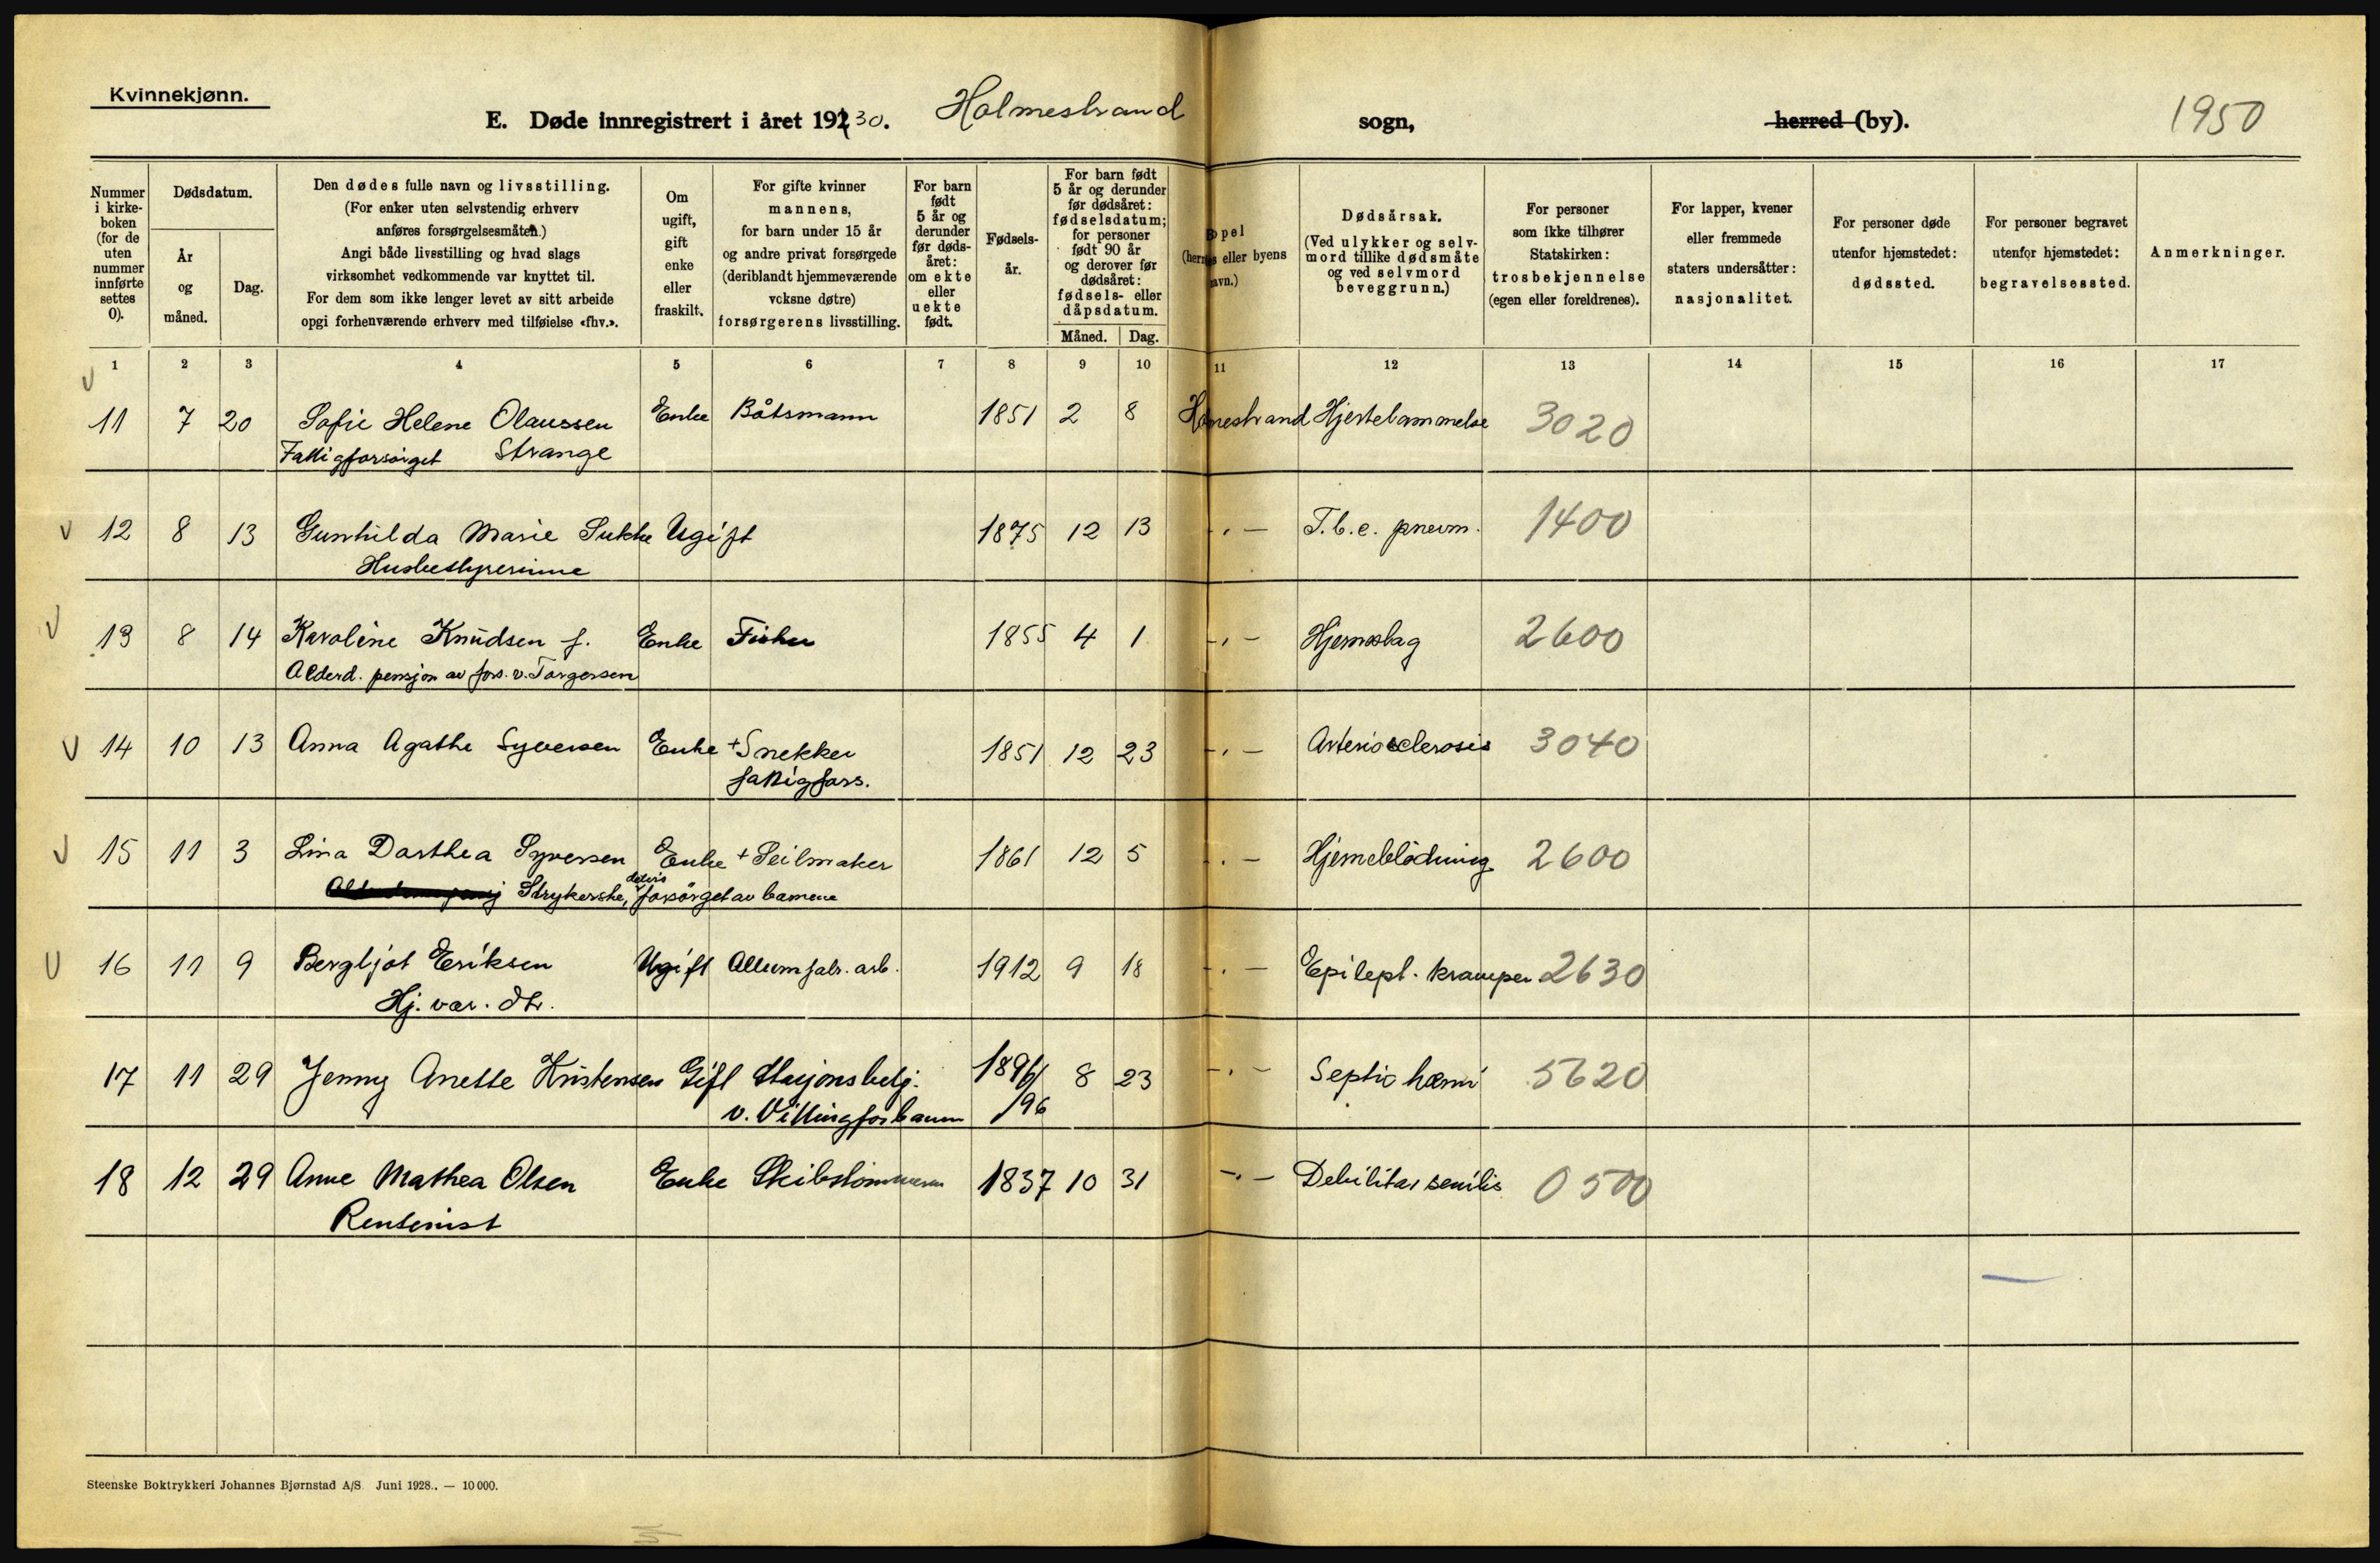 Kvinnekjønn.
E. Døde innregistrert i året 192 30. Holmestrand sogn, herred (by). 1950
Nummer i kirke- boken (for de uten nummer innførte settes 0).
Dødsdatum.
År og måned.
Dag.
Den dødes fulle navn og livsstilling.
(For enker uten selvstendig erhverv
anføres forsørgelsesmåten.)
Angi både livsstilling og hvad slags
virksomhet vedkommende var knyttet til.
For dem som ikke lenger levet av sitt arbeide
opgi forhenværende erhverv med tilføielse «fhv.».
Om ugift, gift enke eller fraskilt.
For gifte kvinner
mannens,
for barn under 15 år
og andre privat forsørgede
(deriblandt hjemmeværende
voksne døtre)
forsørgerens livsstilling.
For barn født 5 år og derunder før døds- året: om ekte eller uekte født.
Fødsels- år.
For barn født
5 år og derunder
før dødsåret:
fødselsdatum;
for personer
født 90 år
og derover før
dødsåret:
fødsels- eller
dåpsdatum.
Måned. Dag.
opel
eller byens
navn.)
Dødsårsak.
(Ved ulykker og selv-
mord tillike dødsmåte
og ved selvmord
beveggrunn.)
For personer
som ikke tilhører
Statskirken:
trosbekjennelse
(egen eller foreldrenes).
For lapper, kvener
eller fremmede
staters undersåtter:
nasjonalitet.
For personer døde
utenfor hjemstedet:
dødssted.
For personer begravet
utenfor hjemstedet:
begravelsessted.
Anmerkninger.
1 2 3 4 5 6 7 8 9 10 11 12 13 14 15 16 17
11 7 20 Sofie Helene Olaussen Enke Båtsmann 1851 2 8 Holmestrand Hjertelammelse 3020
Fattigforsørget Strange
12 8 13 Gunhilda Marie Sukke Ugift 1875 12 13 -"- T.b.c. pneum. 1400
Husbestyrerinne
13 8 14 Karoline Knudsen f. Enke Fisker 1855 4 1 -"- Hjerneslag 2600
Alderd. pensjon av fors. v. Torgersen
14 10 13 Anna Agathe Syversen Enke + Snekker 1851 12 23 -"- Arteriosclerosis 3040
fattigfors.
15 11 3 Lina Dorthea Syversen Enke + Seilmaker 1861 12 5 -"- Hjerneblødning 2600
Strykerske, delvis forsørget av barnene
16 11 9 Bergljot Eriksen Ugift Allumfabr. arb. 1912 9 18 -"- Epilept. kramper 2630
Hj. vær. dtr.
17 11 29 Jenny Anette Kristensen Gift Stasjonsbetj. 1896/ 8 23 -"- Septic hæmi 5620
v. Vittingfosbanen /96
18 12 29 Anne Mathea Olsen Enke Skibstømmerm 1837 10 31 -"- Debilitas senilis 0500
Rentenist
Steenske Boktrykkeri Johannes Bjørnstad A/S. Juni 1928.. — 10 000.